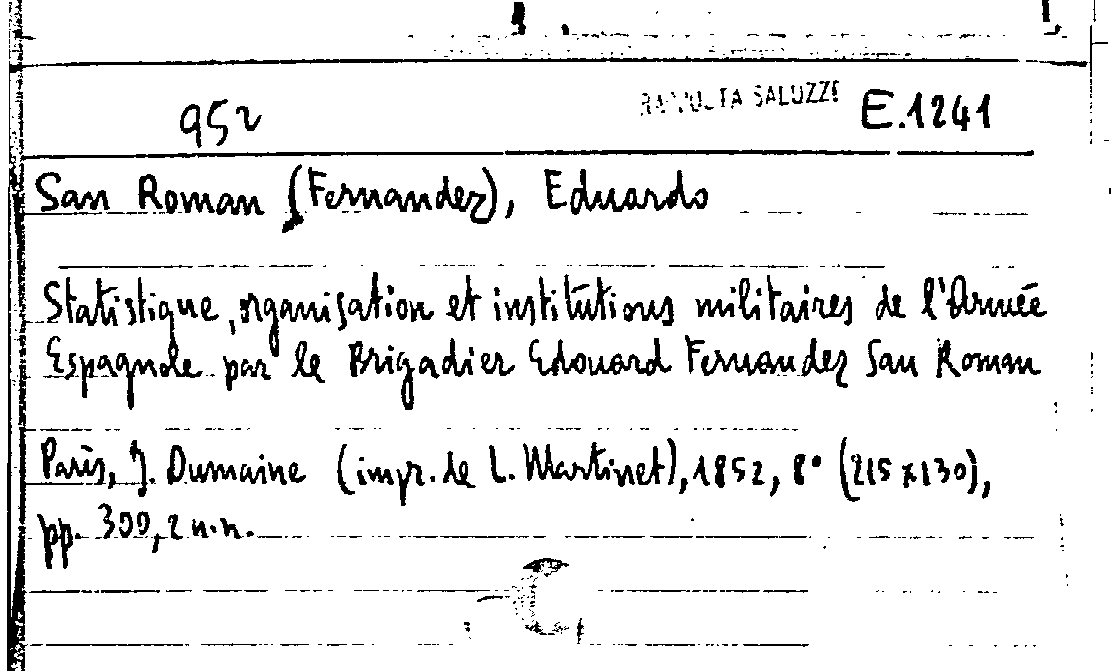 952 RACCOLTA SALUZZO E.1241
San Roman (Fernandez), Eduardo
Statistique, organisation et institutions militaires de l'Armée
Espagnole par le Brigadier Edouard Fernandez San Roman
Paris, J. Dumaine (impr. de L. Martinet), 1852, 8° (215 x 130),
pp. 300, 2 n.n.